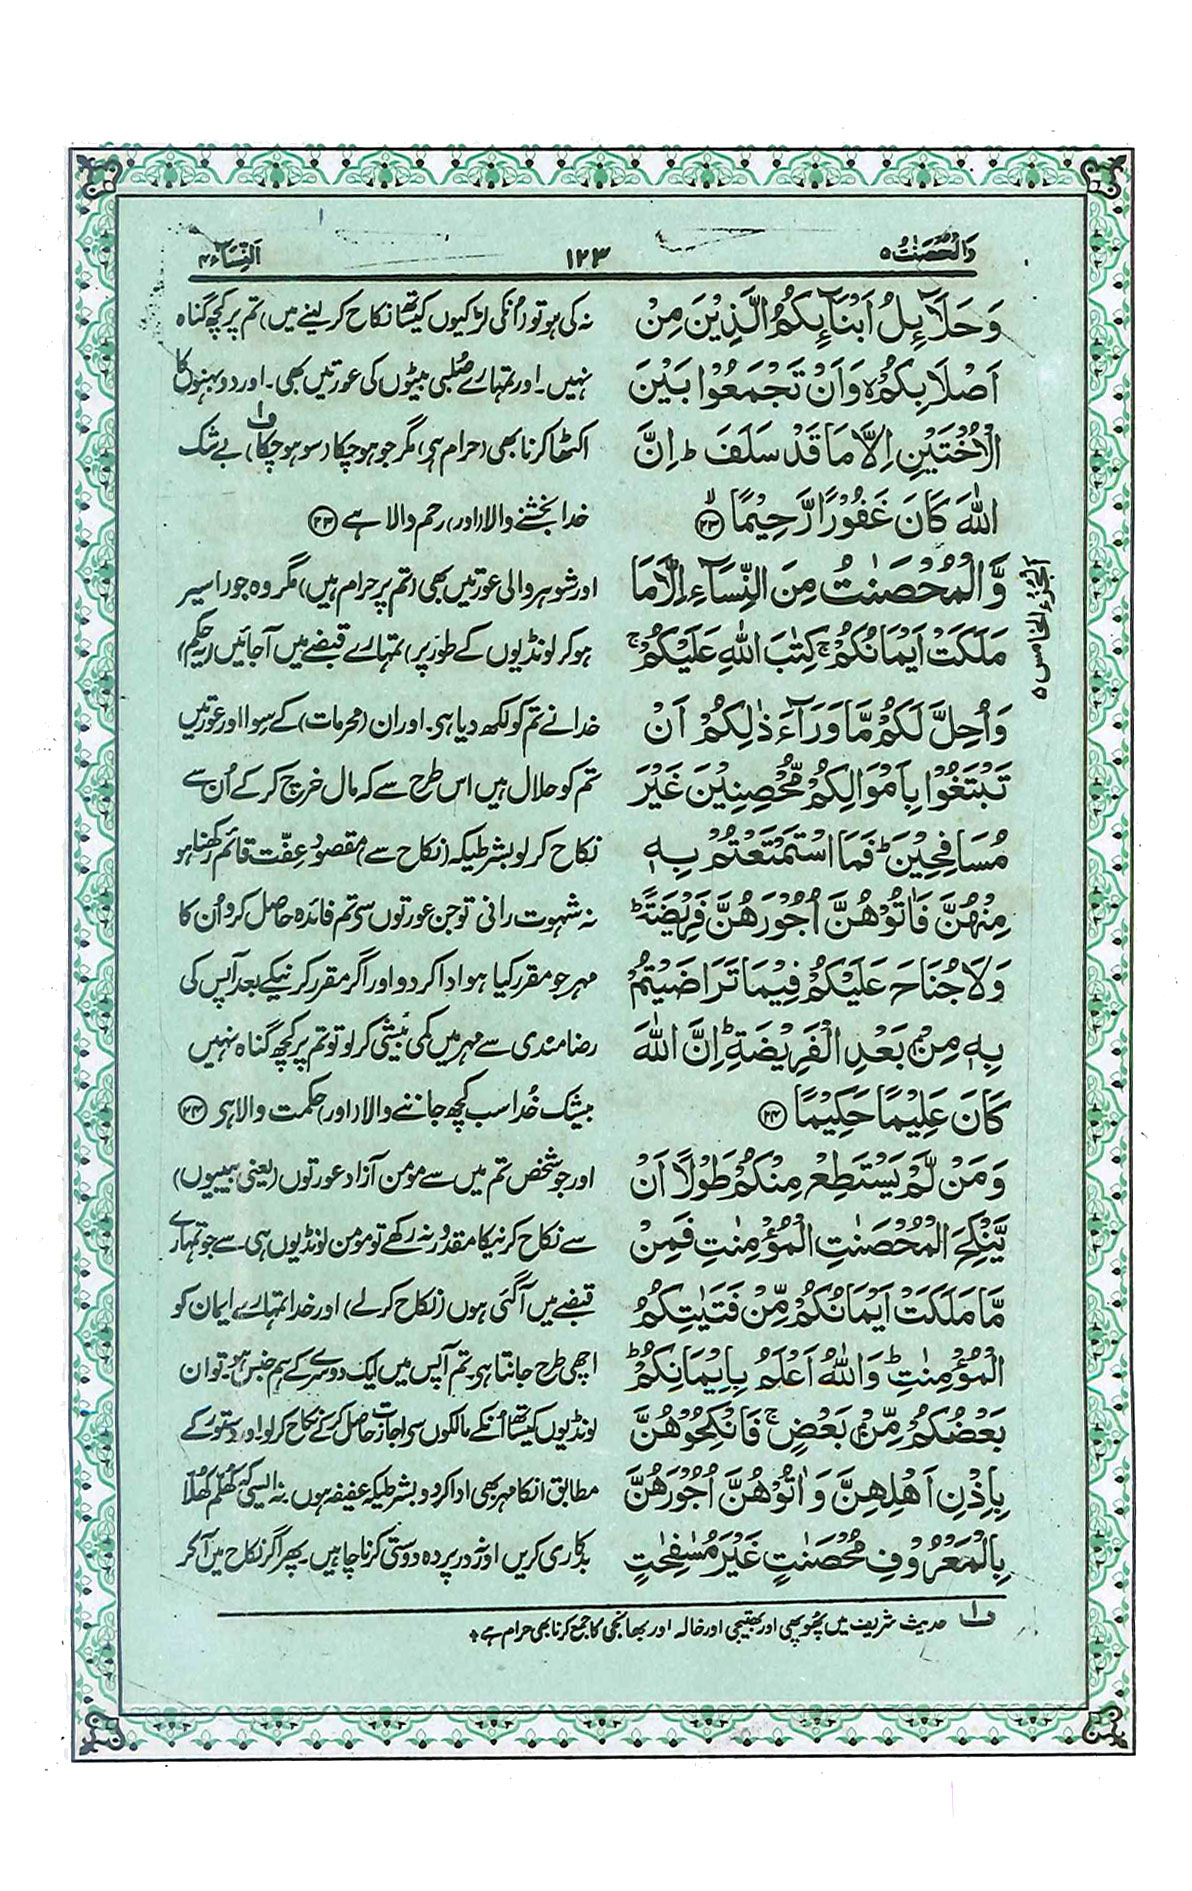 وَالْمُحْصَنٰتُ ۵
۱۲۳
اَلنِّسَآء ۴
وَحَلَآئِلُ اَبْنَآئِكُمُ الَّذِيْنَ مِنْ
اَصْلَابِكُمْ ۙ وَاَنْ تَجْمَعُوْا بَيْنَ
الْاُخْتَيْنِ اِلَّا مَا قَدْ سَلَفَ ؕ اِنَّ
اللّٰهَ كَانَ غَفُوْرًا رَّحِيْمًا ۙ ﴿۲۳﴾
وَّالْمُحْصَنٰتُ مِنَ النِّسَآءِ اِلَّا مَا
مَلَكَتْ اَيْمَانُكُمْ ۚ كِتٰبَ اللّٰهِ عَلَيْكُمْ ۚ
وَاُحِلَّ لَكُمْ مَّا وَرَآءَ ذٰلِكُمْ اَنْ
تَبْتَغُوْا بِاَمْوَالِكُمْ مُّحْصِنِيْنَ غَيْرَ
مُسَافِحِيْنَ ؕ فَمَا اسْتَمْتَعْتُمْ بِهٖ
مِنْهُنَّ فَاٰتُوْهُنَّ اُجُوْرَهُنَّ فَرِيْضَةً ؕ
وَلَا جُنَاحَ عَلَيْكُمْ فِيْمَا تَرَاضَيْتُمْ
بِهٖ مِنْۢ بَعْدِ الْفَرِيْضَةِ ؕ اِنَّ اللّٰهَ
كَانَ عَلِيْمًا حَكِيْمًا ﴿۲۴﴾
وَمَنْ لَّمْ يَسْتَطِعْ مِنْكُمْ طَوْلًا اَنْ
يَّنْكِحَ الْمُحْصَنٰتِ الْمُؤْمِنٰتِ فَمِنْ
مَّا مَلَكَتْ اَيْمَانُكُمْ مِّنْ فَتَيٰتِكُمُ
الْمُؤْمِنٰتِ ؕ وَاللّٰهُ اَعْلَمُ بِاِيْمَانِكُمْ ؕ
بَعْضُكُمْ مِّنْۢ بَعْضٍ ۚ فَانْكِحُوْهُنَّ
بِاِذْنِ اَهْلِهِنَّ وَاٰتُوْهُنَّ اُجُوْرَهُنَّ
بِالْمَعْرُوْفِ مُحْصَنٰتٍ غَيْرَ مُسٰفِحٰتٍ
نہ کی ہو تو (اُنکی لڑکیوں کیساتھ نکاح کر لینے میں) تم پر کچھ گناہ
نہیں۔ اور تمہارے صُلبی بیٹوں کی عورتیں بھی۔ اور دو بہنوں کا
اکٹھا کرنا بھی (حرام ہی) مگر جو ہو چکا (سو ہو چکا) ف۱ بے شک
خدا بخشنے والا (اور) رحم والا ہے ﴿۲۳﴾
اور شوہر والی عورتیں بھی (تم پر حرام ہیں) مگر وہ جو (اسیر
ہو کر لونڈیوں کے طور پر) تمہارے قبضے میں آجائیں (یہ حکم)
خدا نے تم کو لکھ دیا ہی۔ اور ان (محرمات) کے سوا اور عورتیں
تم کو حلال ہیں اس طرح سے کہ مال خرچ کر کے اُن سے
نکاح کر لو بشرطیکہ (نکاح سے) مقصود عِفّت قائم رکھنا ہو
نہ شہوت رانی تو جن عورتوں سی تم فائدہ حاصل کرو اُن کا
مہر جو مقرر کیا ہو ادا کر دو اور اگر مقرر کرنیکے بعد آپس کی
رضامندی سے مہر میں کمی بیشی کر لو تو تم پر کچھ گناہ نہیں
بیشک خُدا سب کچھ جاننے والا (اور) حکمت والا ہی ﴿۲۴﴾
اور جو شخص تم میں سے مومن آزاد عورتوں (یعنی بیبیوں)
سے نکاح کرنیکا مقدُور نہ رکھے تو مومن لونڈیوں ہی سے جو تمہارے
قبضے میں آگئی ہوں (نکاح کر لے) اور خدا تمہارے ایمان کو
اچھی طرح جانتا ہی۔ تم آپس میں ایک دوسرے کے ہم جنس ہو۔ تو ان
لونڈیوں کیساتھ اُنکے مالکوں سی اجازت حاصل کر کے نکاح کر لو اور دستور کے
مطابق انکا مہر بھی ادا کر دو بشرطیکہ عفیفہ ہوں۔ نہ ایسی کہ کھلم کھلا
بدکاری کریں اور نہ در پردہ دوستی کرنا چاہیں۔ پھر اگر نکاح میں آکر
الجزء الخامس ۵
ف۱ حدیث شریف میں پھوپھی اور بھتیجی اور خالہ اور بھانجی کا جمع کرنا بھی حرام ہے ۔